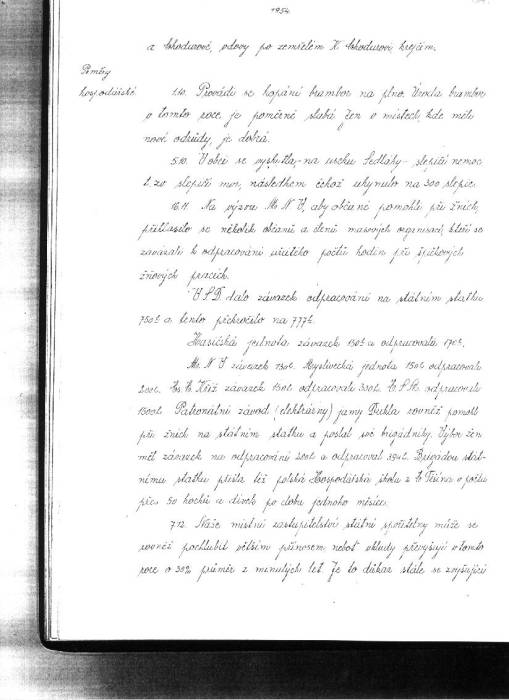 1954
a Chodurové, vdovy po zemřelém K. Chodurovi krejčím.
Poměry
hospodářské
1.10. Provádí se kopání brambor na plno. Úroda brambor
v tomto roce je poměrně slabá. Jen v místech, kde měli
nové odrůdy, je dobrá.
5.10. V obci se vyskytla na úseku Sedlahy slepičí nemoc
t. zv. slepičí mor, následkem čehož uhynulo na 300 slepic.
16.11. Na výzvu M.N.V, aby občané pomohli při žních,
přihlásilo se několik občanů a členů masových organisací, kteří se
zavázali k odpracování určitého počtu hodin při špičkových
žňových pracích.
ČSD dalo závazek odpracování na státním statku
750h a tento překročilo na 777h.
Hasičská jednota závazek 150h a odpracovala 170h.
M.N.V závazek 130h. Myslivecká jednota 150h odpracovali
200h. Čs. Č. Kříž závazek 150h odpracovali 350h. odpracovali
1500h. Patronátní závod (elektrárny) jámy Dukla rovněž pomohl
při žních na státním statku a poslal své brigádníky. Výbor žen
měl závazek na odpracování 200h a odpracoval 394h. Brigádou stát-
nímu statku přišla též polská Hospodářská škola z Č. Těšína v počtu
přes 50 hochů a dívek po dobu jednoho měsíce.
7.12. Naše místní zastupitelství státní spořitelny může se
rovněž pochlubit větším přínosem neboť vklady převyšují v tomto
roce o 30% průměr z minulých let. Je to důkaz stále se zvyšující